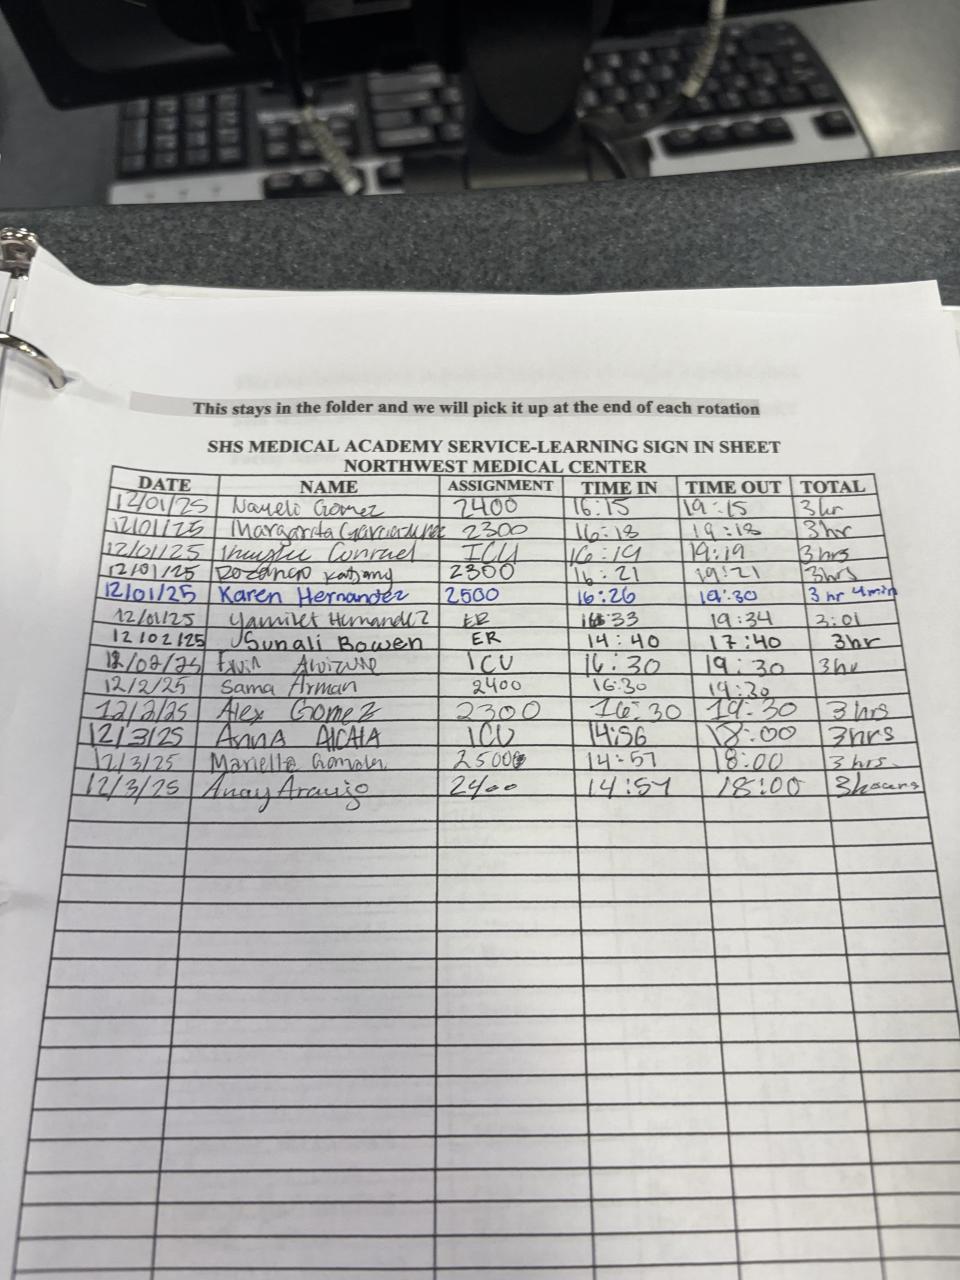 This stays in the folder and we will pick it up at the end of each rotation
SHS MEDICAL ACADEMY SERVICE-LEARNING SIGN IN SHEET
NORTHWEST MEDICAL CENTER
DATE NAME ASSIGNMENT TIME IN TIME OUT TOTAL
12/01/25 Nayeli Gomez 2400 16:15 19:15 3hr
12/01/25 Margarita 2300 16:18 19:18 3hr
12/01/25 ICU 16:19 19:19 3hrs
12/01/25 2300 16:21 19:21 3hrs
12/01/25 Karen Hernandez 2500 16:26 19:30 3 hr 4min
12/01/25 Yamilet Hernandez ER 16:33 19:34 3:01
12/02/25 Sunali Bowen ER 14:40 17:40 3hr
12/02/25 ICU 16:30 19:30 3hr
12/2/25 Sama Arman 2400 16:30 19:30
12/2/25 Alex Gomez 2300 16:30 19:30 3 hrs
12/3/25 AnnA AlCAlA ICU 14:56 18:00 3hrs
12/3/25 2500 14:57 18:00 3 hrs
12/3/25 Anay Araujo 2400 14:57 18:00 3hours